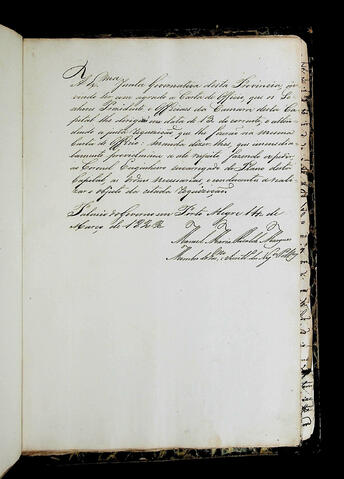 A Ex.ma Junta Governativa desta Provincia, ou
vindo com agrado a Carta de Officio, que os Se
nhores Presidente e Officiaes da Camara desta Ca
pital lhe dirigio em data de 13 do corrente, e atten
dendo a justa requisição que lhe fazião na mesma
Carta de Officio: manda dizer lhes, que immedia
tamente providenciou a tal respeito fazendo expedir
ao Coronel Engenheiro encarregado do Plano desta
Capital, as Ordens necessarias e conducentes a reali
zar o objecto da citada requisição.
Palacio do Governo em Porto Alegre 14 de
Março de 1823
Manoel Maria Marques
Membro do